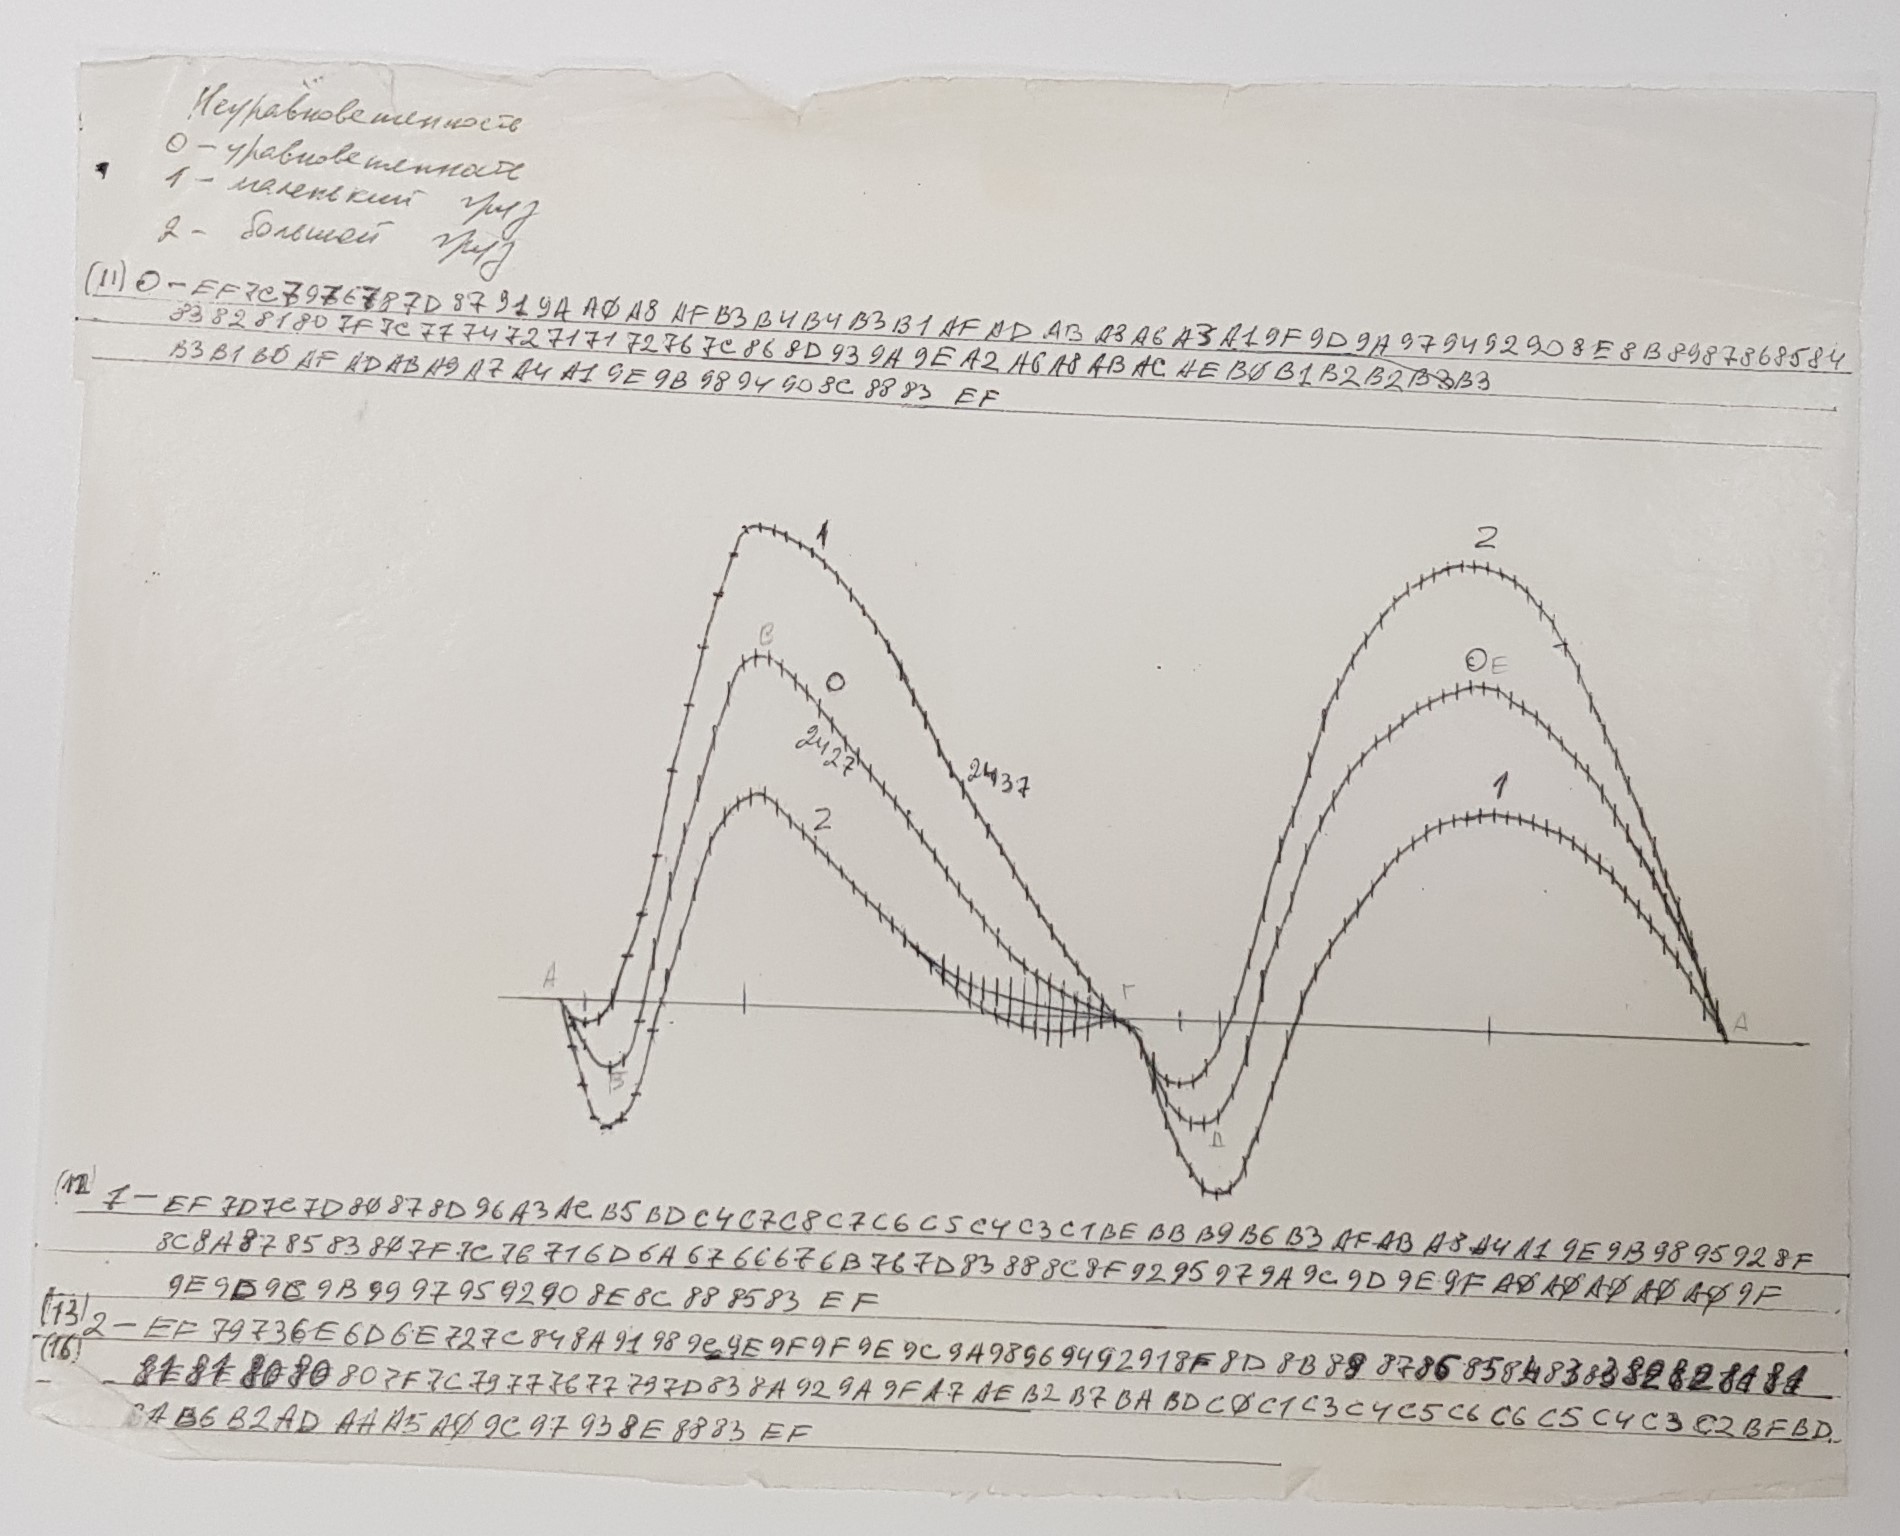 Неуравновешенность
0 - уравновешенность
1 - маленький груз
2 - большой груз
(11) 0 - EF 7C 79 76 78 7D 87 91 9A AØ A8 AF B3 B4 B4 B3 B1 AF AD AB A8 A6 A3 A1 9F 9D 9A 97 94 92 90 8E 8B 89 87 86 85 84
83 82 81 80 7F 7C 77 74 72 71 71 72 76 7C 86 8D 93 9A 9E A2 A6 A8 AB AC AE BØ B1 B2 B2 B3 B3
B3 B1 BØ AF AD AB A9 A7 A4 A1 9E 9B 98 94 90 8C 88 83 EF
1
2
В
0
0 Е
2427
2437
1
2
А
Г
А
Б
Д
(12) 1 - EF 7D 7C 7D 8Ø 87 8D 96 A3 AC B5 BD C4 C7 C8 C7 C6 C5 C4 C3 C1 BE BB B9 B6 B3 AF AB A8 A4 A1 9E 9B 98 95 92 8F
8C 8A 87 85 83 80 7F 7C 76 71 6D 6A 67 66 67 6B 76 7D 83 88 8C 8F 92 95 97 9A 9C 9D 9E 9F AØ AØ AØ AØ AØ 9F
9E 9D 9C 9B 99 97 95 92 90 8E 8C 88 85 83 EF
(13) 2 - EF 79 73 6E 6D 6E 72 7C 84 8A 91 98 9C 9E 9F 9F 9E 9C 9A 98 96 94 92 91 8F 8D 8B 89 87 86 85 84 83 83 82 82 81 81
(16) 81 81 80 80 80 7F 7C 79 77 76 77 79 7D 83 8A 92 9A 9F A7 AE B2 B7 BA BD CØ C1 C3 C4 C5 C6 C6 C5 C4 C3 C2 BF BD
BA B6 B2 AD AA A5 AØ 9C 97 93 8E 88 83 EF